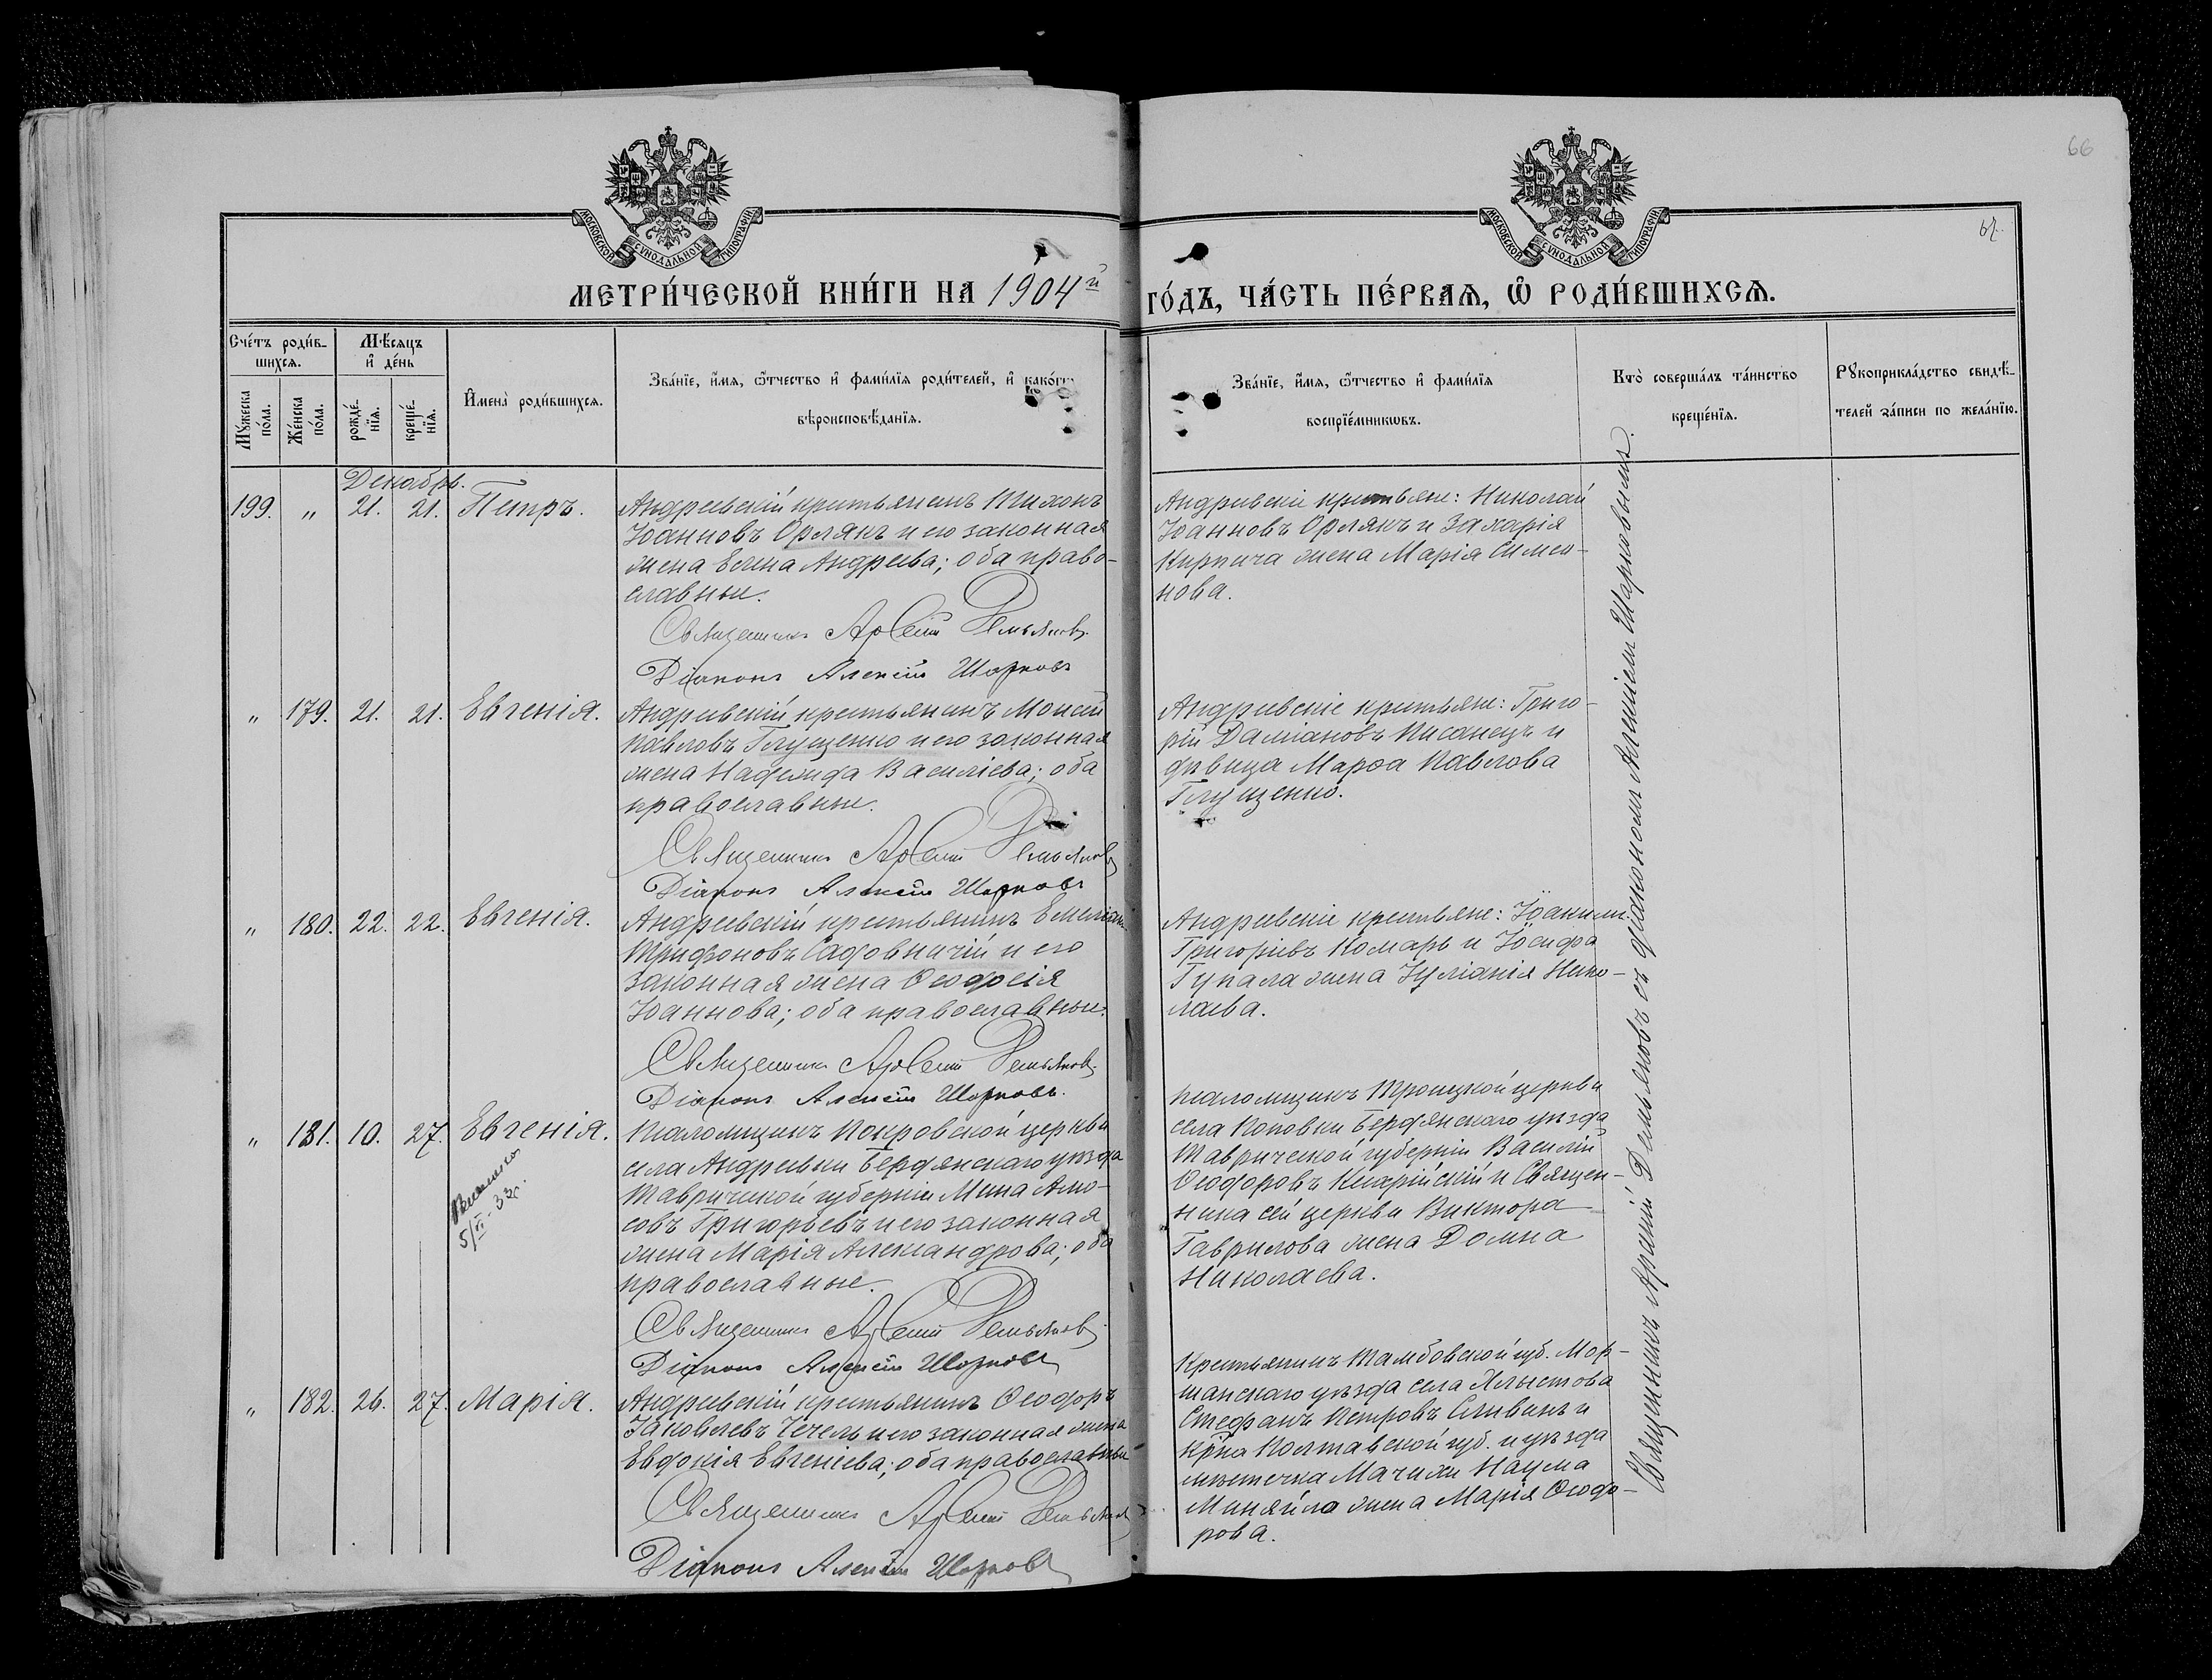 66
67.
МОСКОВСКОЙ СѴНОДАЛЬНОЙ ТИПОГРАФІИ
МОСКОВСКОЙ СѴНОДАЛЬНОЙ ТИПОГРАФІИ
МЕТРИ́ЧЕСКОЙ КНИ́ГИ НА 1904й
ГО́ДЪ, ЧА́СТЬ ПЕ́РВАѦ, Ѽ РОДИ́ВШИХСѦ.
Сче́тъ роди́в-
шихсѧ.
Мꙋ́жеска по́ла.
Же́нска по́ла.
Мѣ́сѧцъ
и҆ де́нь
рожде́-
нїѧ.
креще́-
нїѧ.
И҆мена̀ роди́вшихсѧ.
Зва́нїе, и҆́мѧ, ѻ҆́тчество и҆ фамі́лїѧ роди́телей, и҆ како́гѡ
вѣроисповѣ́данїѧ.
Зва́нїе, и҆́мѧ, ѻ҆́тчество и҆ фамі́лїѧ
воспрїе́мникѡвъ.
Кто̀ соверша́лъ та́инство
креще́нїѧ.
Рꙋкоприкла́дство свидѣ́-
телей за́писи по жела́нїю.
Декабрь.
199. " 21. 21. Петръ.
Андреевскій крестьянинъ Тихонъ
Іоанновъ Орлякъ и его законная
жена Елена Андреева; оба право-
славные.
Священникъ Арсеній Демьяновъ
Діаконъ Алексій Шарковъ
Андреевскіе крестьяне: Николай
Іоанновъ Орлякъ и Захарія
Кирпича жена Марія Симео-
нова.
" 179. 21. 21. Евгенія.
Андреевскій крестьянинъ Моисей
Павловъ Глущенко и его законная
жена Надежда Василіева; оба
православные.
Священникъ Арсеній Демьяновъ
Діаконъ Алексій Шарковъ
Андреевскіе крестьяне: Григо-
рій Даміановъ Писанецъ и
дѣвица Марѳа Павлова
Глущенко.
" 180. 22. 22. Евгенія.
Андреевскій крестьянинъ Емеліанъ
Трифоновъ Садовничій и его
законная жена Ѳеодосія
Іоаннова; оба православные.
Священникъ Арсеній Демьяновъ
Діаконъ Алексій Шарковъ.
Андреевскіе крестьяне: Іоакимъ
Григоріевъ Комаръ и Іосифа
Гупала жена Іуліанія Нико-
лаева.
" 181. 10. 27. Евгенія.
5/II-33г.
Псаломщикъ Покровской церкви
села Андреевки Бердянскаго уѣзда
Таврической губерніи Мина Амо-
совъ Григорьевъ и его законная
жена Марія Александрова; оба
православные.
Священникъ Арсеній Демьяновъ
Діаконъ Алексій Шарковъ
Псаломщикъ Троицкой церкви
села Поповки Бердянскаго уѣзда
Таврической губерніи Василій
Ѳеодоровъ и Священ-
ника сей церкви Виктора
Гаврилова жена Домна
Николаева.
" 182. 26. 27. Марія.
Андреевскій крестьянинъ Ѳеодоръ
Іаковлевъ Чечель и его законная жена
Евдокія Евгеніева; оба православные
Священникъ Арсеній Демьяновъ
Діаконъ Алексій Шарковъ
Крестьянинъ Тамбовской губ. Мор-
шанскаго уѣзда села
Стефанъ Петровъ и
кр̃на Полтавской губ. и уѣзда
мѣстечка Мачихи Наума
Миняйла жена Марія Ѳеодо-
рова.
Священникъ Арсеній Демьяновъ съ діакономъ Алексіемъ Шарковымъ.